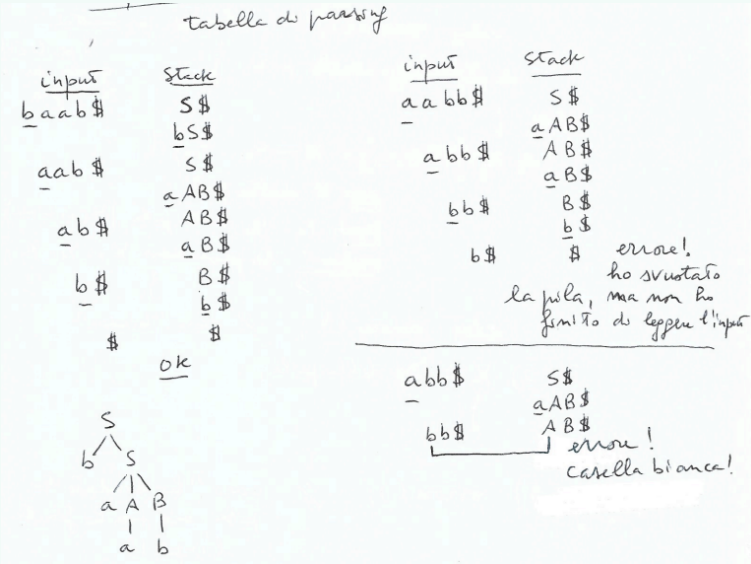 tabella di parsing
input stack
baab$ S$
bS$
aab$ S$
aAB$
ab$ AB$
aB$
b$ B$
b$
$ $
ok
S
b S
a A B
a b
input stack
aabb$ S$
aAB$
abb$ AB$
aB$
bb$ B$
b$
b$ $ errore!
ho svuotato
la pila, ma non ho
finito di leggere l'input
abb$ S$
aAB$
bb$ AB$
errore!
casella bianca!